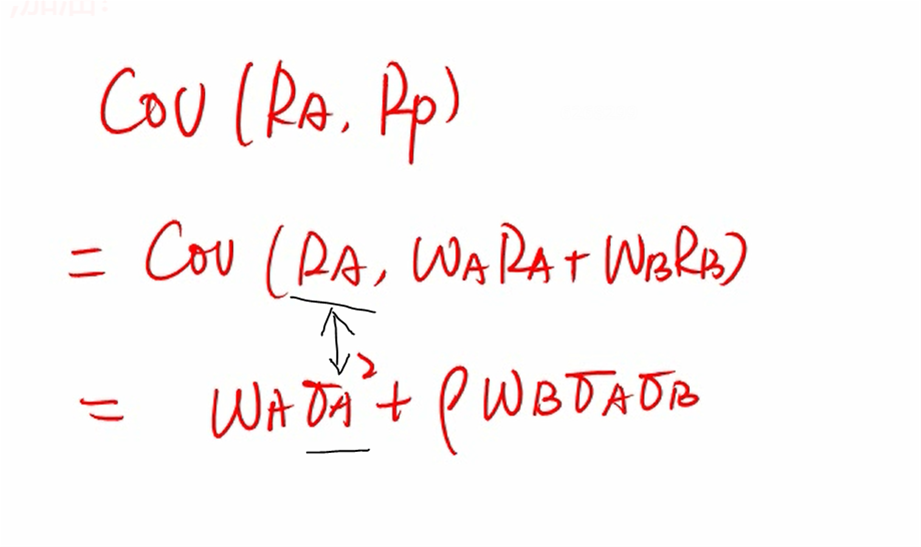 Cov (RA, Rp)
= Cov (RA, WARA + WBRB)
= WAσA² + ρWBσAσB